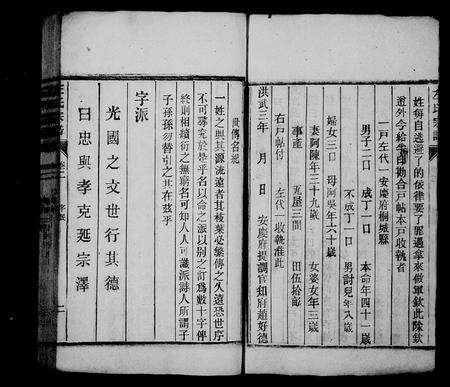 姓每自迯避了的依律要了罪過拿來做軍欽此除欽
遵外今給半印勘合戶帖本戶收執者
一戶左代一安慶府桐城縣
男子二口
成丁一口
本命年四十一歲
不成丁一口
男討兒年八歲
婦女三口
母阿吳年六十歲
妻阿陳年三十九歲
女婆女年三歲
事產
瓦屋三間
田伍拾畝
右戶帖付
左代一收執准此
洪武三年　月　日
安慶府提調官知府趙好德
世傳名紀
一姓之興其源流遠者其枝葉必繁傳之久遠恐世序
不可尋究於是乎名以命之派以别之訂爲數十字俾
終則相續衍之無窮名可知人人可識派詩人所謂子
子孫孫勿替引之其在玆乎
字派
光國之文世行其德
曰忠與孝克延宗澤